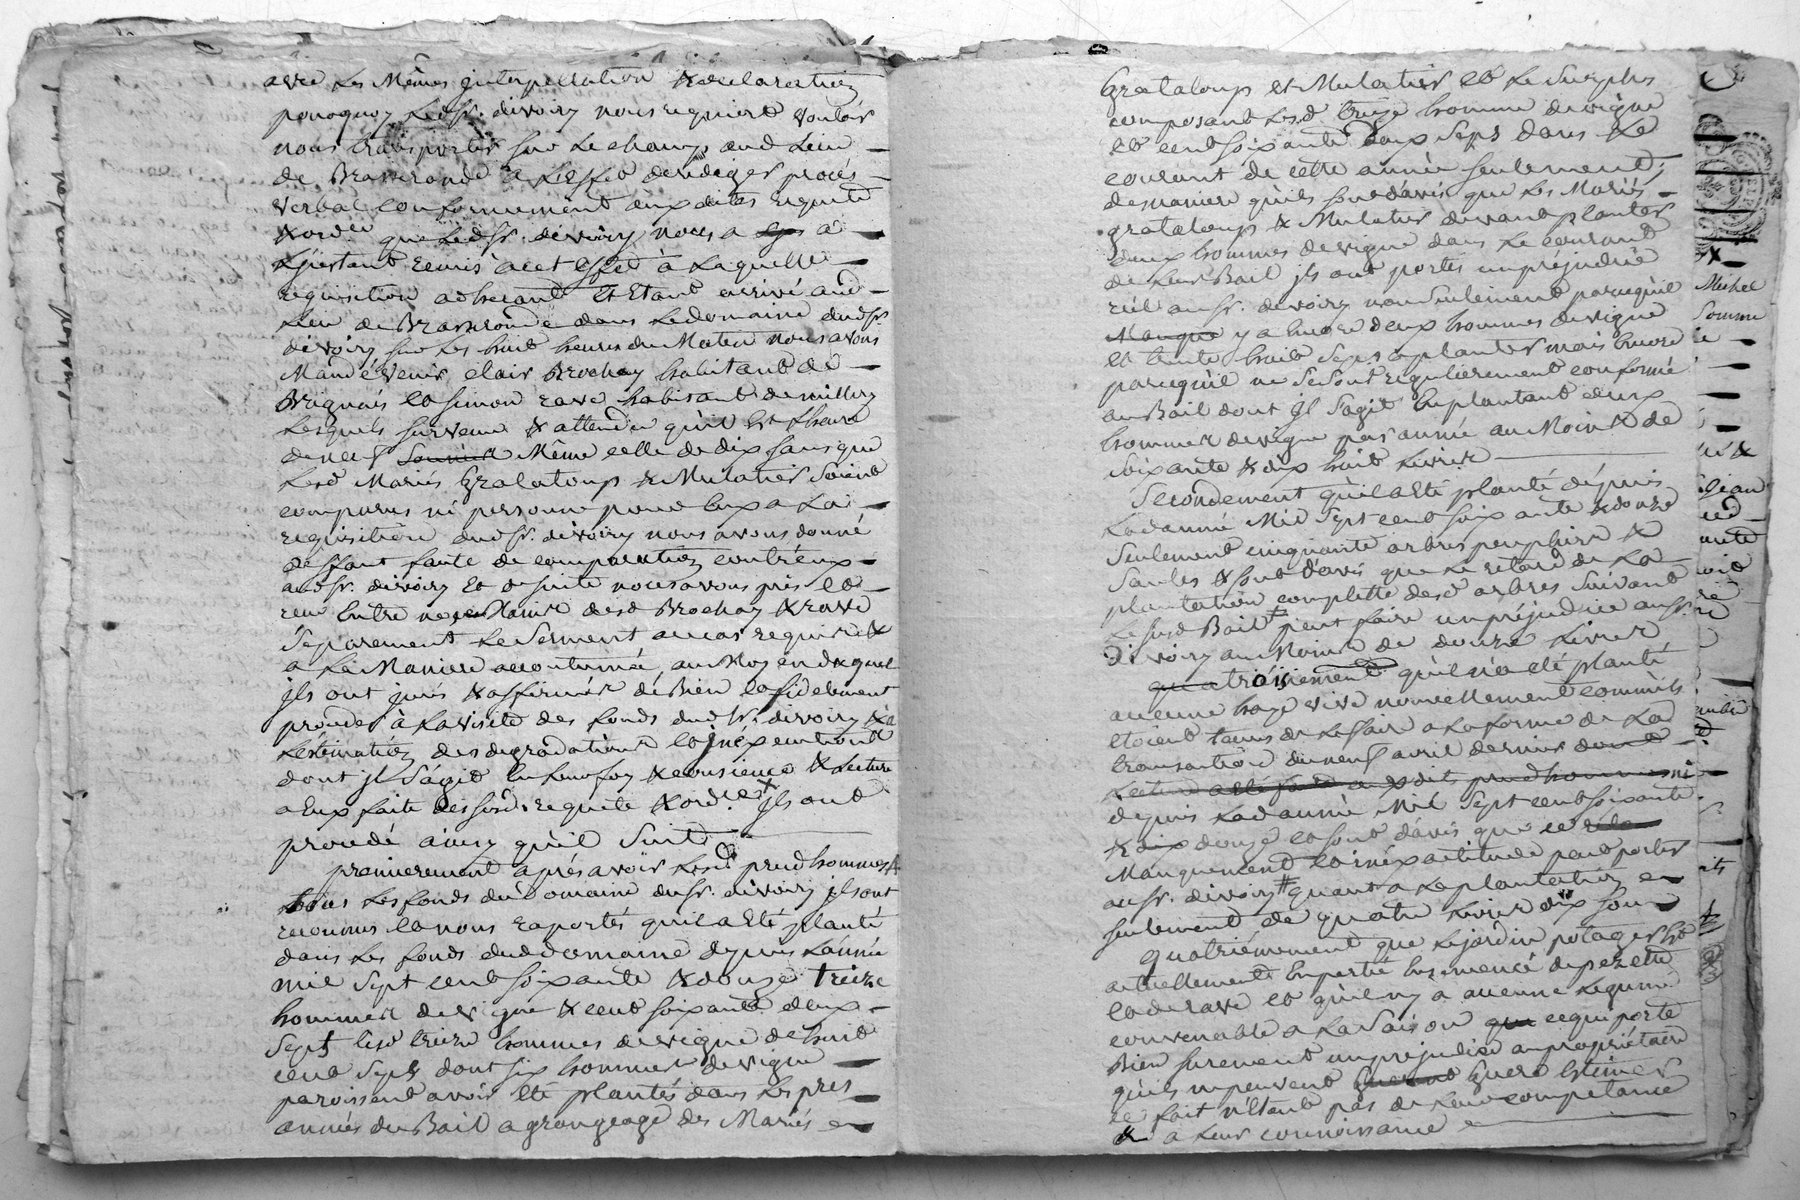 avec les Mêmes jnterpellation & declaration
pourquoy ledsr. divoiry nous requiert vouloir
nous transporter sur le champ aud Lieu
de Brasseronde a l'effet de rediger procés
verbal conformement aux dites requete
& ordce que ledsr. divoiry nous a à
L'jnstant remis a cet effet à Laquelle
requisition adherant Et Etant arrivé aud
Lieu de Brasseronde dans Le domaine dudsr.
divoiry sur les huit heures du Matin nous avons
Mandé & venir clair Brochay habitant de
Brignais et simon rave habitant de millery
Lesquels survenu & attendu qu'il Est L'heure
de neuf Même celle de dix sans que
Lesd Mariés Grataloup & Mulatier soient
comparus ni personne pour Eux a La
requisition dudsr. divoiry nous avons donné
deffaut faute de comparution contr'eux
audsr. divoiry et de suite nous avons pris et
recu Entre nos Mains desd Brochay & rave
séparement Le serment au cas requis &
a La Maniere accoutumée, au Moyen duquel
jls ont jurés & affirmés de Bien et fidelement
proceder à La visite des fonds dudsr. divoiry & à
L'éstimation des degradations et jnéxecutions
dont jl s'agit En leur foy & consience & Lecture
a Eux faite des susd. requete & ordce jls ont
procedé ainsy qu'il suit
premierement aprés avoir lesd prud hommes
tous Les fonds du domaine du sr. divoiry jls ont
reconnus et nous raportés qu'il a Eté planté
dans Les fonds dud domaine depuis L'année
mil sept cent soixante & douze treize
hommes de vigne & cent soixante deux
seps lesd treize hommes de vigne de huit
cent seps dont six hommes de vigne
paroissent avoir Eté plantés dans les pres
années du Bail a grangeage des Mariés
Grataloup et Mulatier et Le surplus
composant lesd treize homme de vigne
et cent soixante deux seps dans Le
courant de cette année seulement;
de maniere qu'ils sont d'avis que les Mariés
grataloup & Mulatier devant planter
deux hommes de vigne dans Le courant
de Leur Bail jls ont portés un préjudice
réel au sr. divoiry non seulement parcequ'il
Manque y a Encore deux hommes de vigne
et trente huit seps a planter mais Encore
parcequ'il ne se sont regulierement conformé
au Bail dont jl s'agit En plantant deux
hommes de vigne par année au Moins de
soixante & dix huit Livres
Secondement qu'il a Eté planté dépuis
Lad année Mil sept cent soixante & douze
seulement cinquante arbres peupliers &
saules & sont d'avis que Le retard de La
plantation complette desd arbres suivant
Le susd Bail peut faire un préjudice au sr.
divoiry au Moins de douze Livres
troisiement qu'il n'a eté planté
aucune haye vive nouvellement comm'ils
étoient tenus de Le faire a La forme de La
transaction du neuf avril dernier dont
Lecture a eté faite aux dits prud hommes ni
depuis Lad année Mil sept cent soixante
& dix douze et sont d'avis que ce
Manquement et inéxactitude peut porter
au sr. divoiry quant a La plantation
seulement de quatre Livres dix sous
quatriémement que Le jardin potager Est
actuellement En partié Ensemencé de pezette
et de rave et qu'il n'y a aucune Legume
convenable a La saison que ce qui porte
Bien surement un préjudice au propriétaire
qu'ils ne peuvent Guere Estimer
ce fait n'étant pas de Leur competance
& a Leur connoissance
Michel
Somme